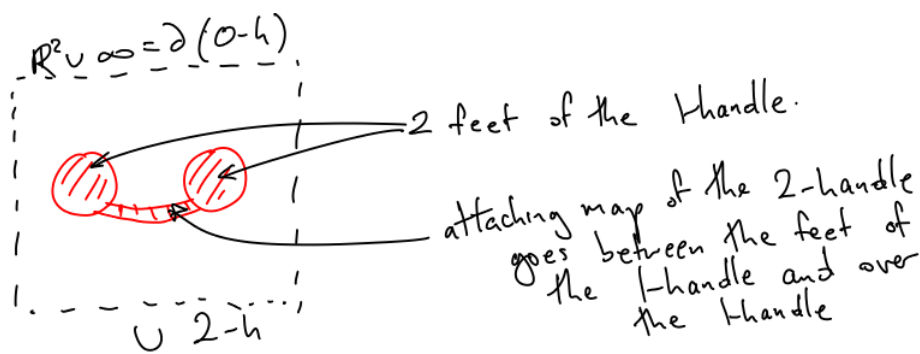 ℝ² ∪ ∞ = ∂(0-h)
2 feet of the 1-handle.
attaching map of the 2-handle
goes between the feet of
the 1-handle and over
the 1-handle
∪ 2-h